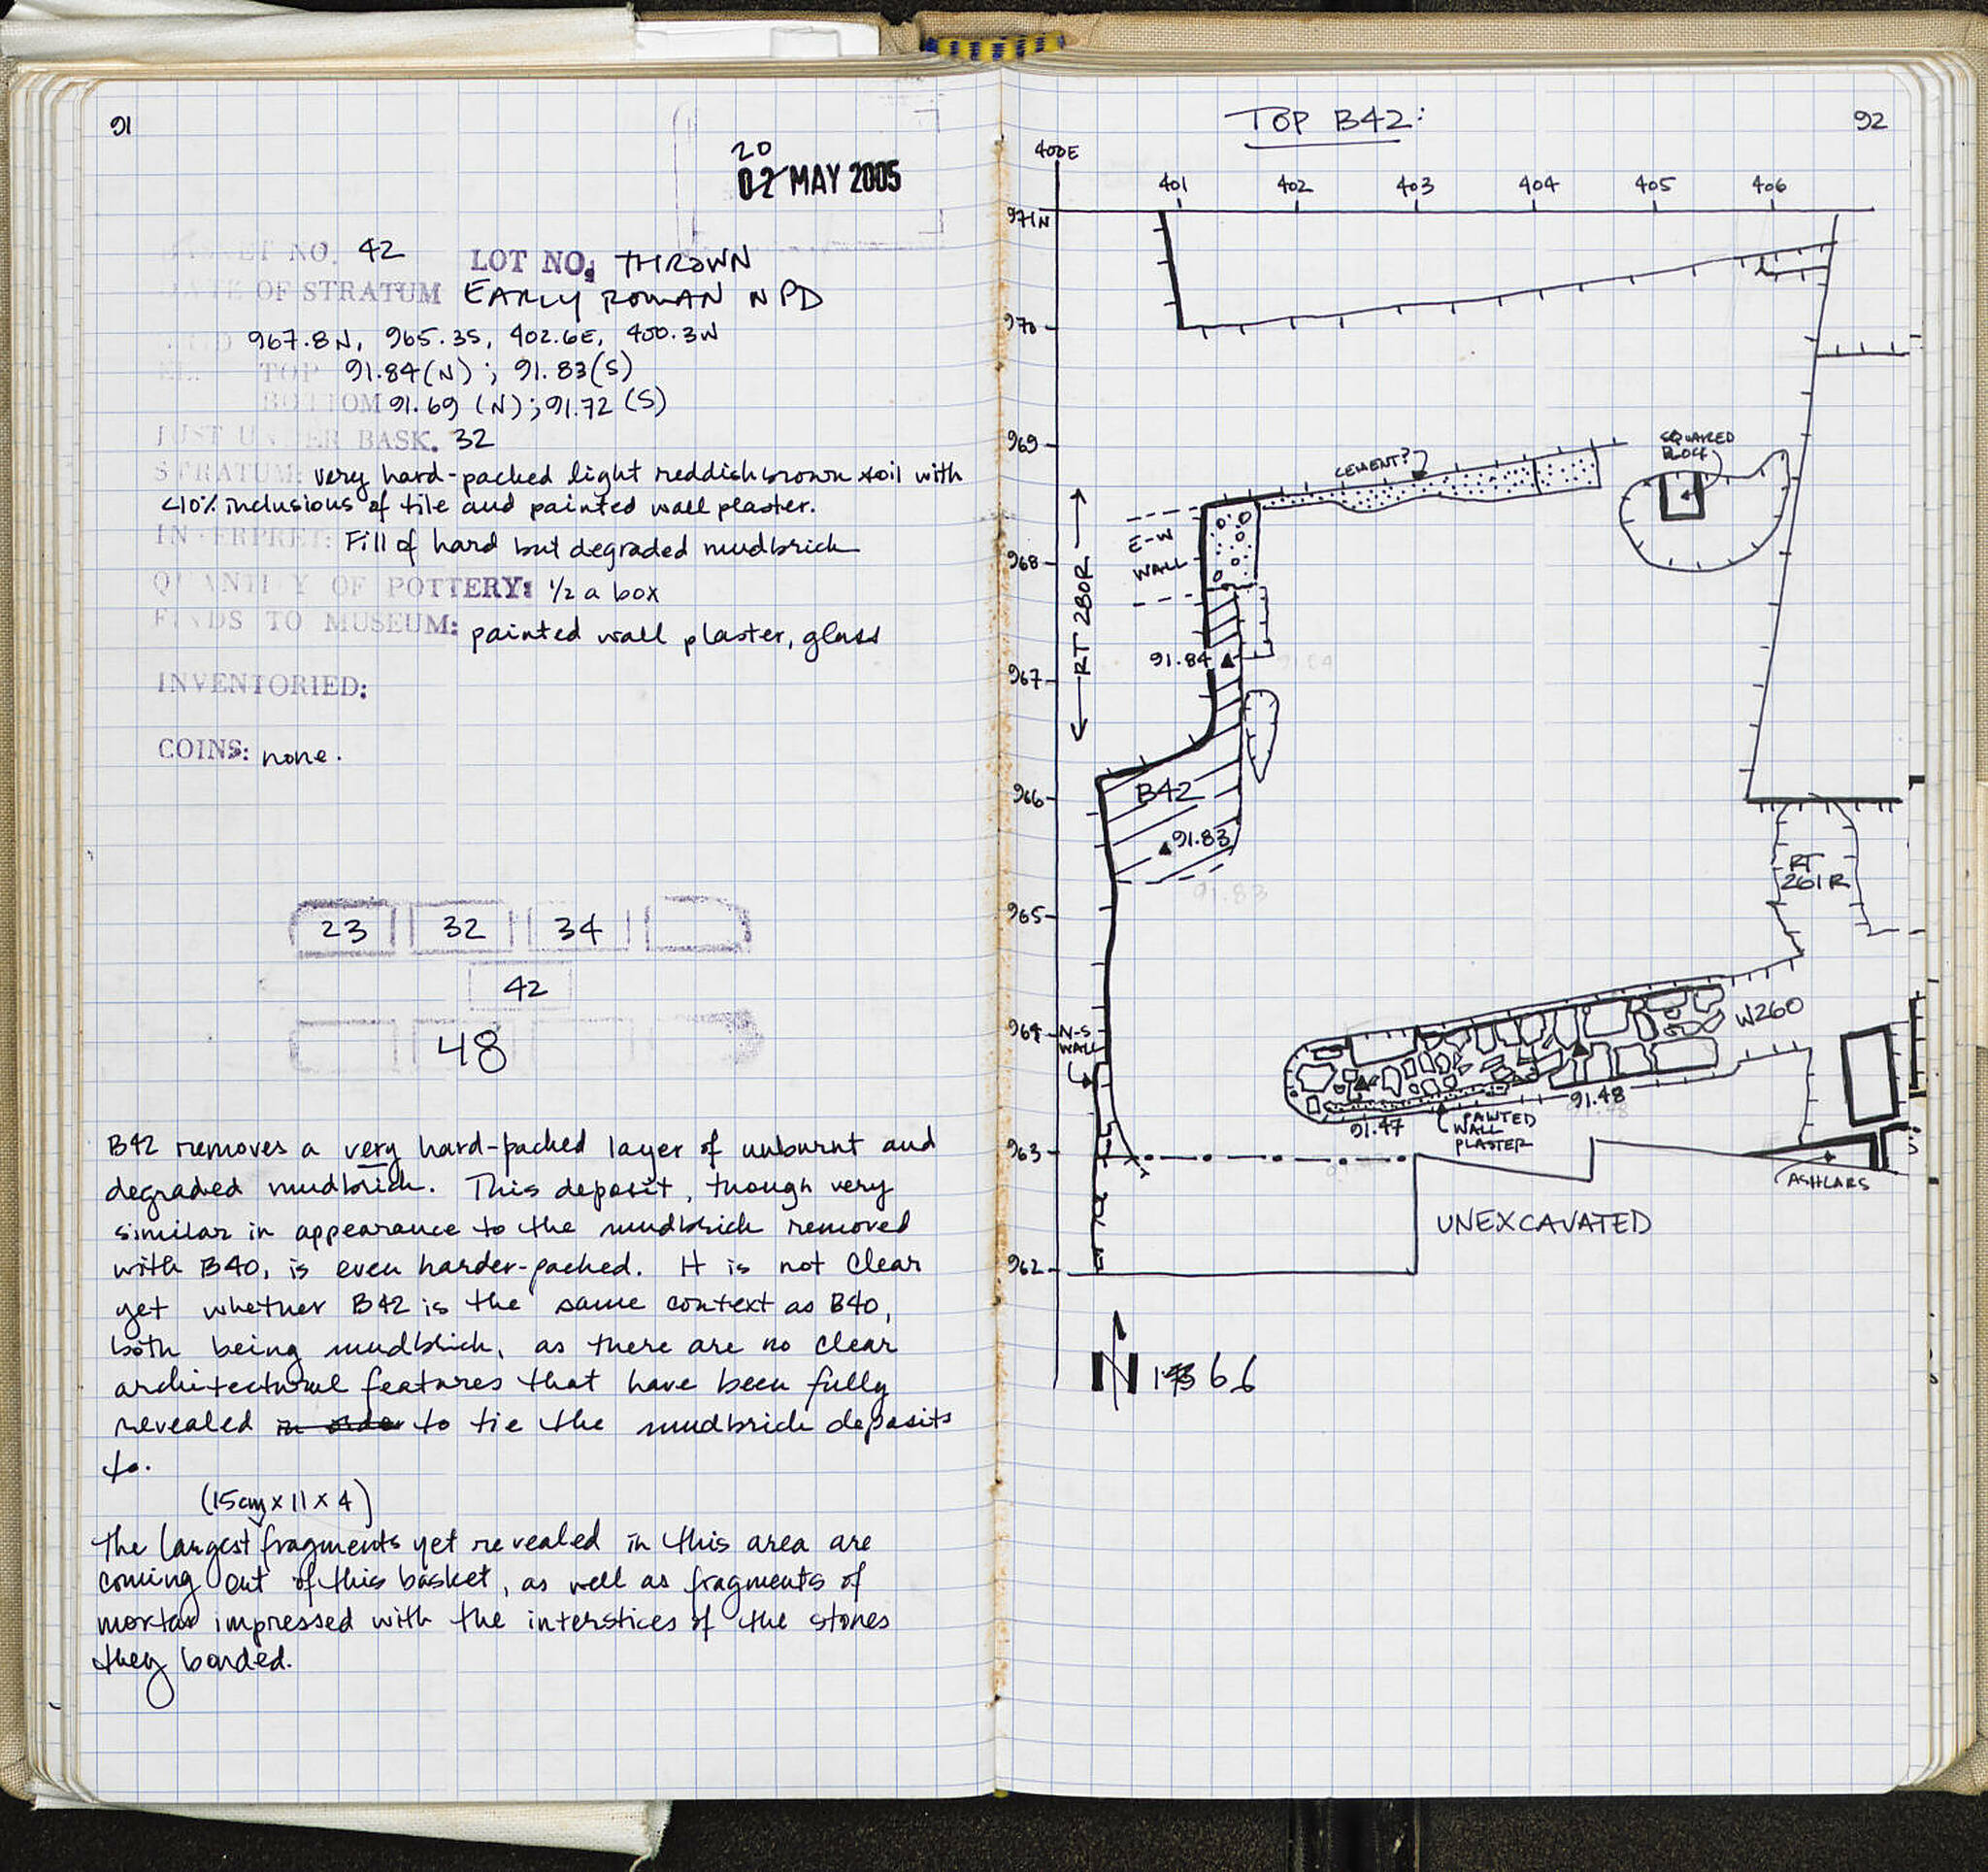 91
20
02 MAY 2005
BASKET NO. 42 LOT NO. THROWN
DATE OF STRATUM EARLY ROMAN NPD
GRID 967.8N, 965.3S, 402.6E, 400.3W
EL. TOP 91.84(N); 91.83(S)
BOTTOM 91.69 (N); 91.72 (S)
JUST UNDER BASK. 32
STRATUM: very hard-packed light reddish brown soil with
<10% inclusions of tile and painted wall plaster.
INTERPRET: Fill of hard but degraded mudbrick
QUANTITY OF POTTERY: 1/2 a box
FINDS TO MUSEUM: painted wall plaster, glass
INVENTORIED:
COINS: none.
23 32 34
42
48
B42 removes a very hard-packed layer of unburnt and
degraded mudbrick. This deposit, though very
similar in appearance to the mudbrick removed
with B40, is even harder-packed. It is not clear
yet whether B42 is the same context as B40,
both being mudbrick, as there are no clear
architectural features that have been fully
revealed in order to tie the mudbrick deposits
to.
(15cm x 11 x 4)
The largest fragments yet revealed in this area are
coming out of this basket, as well as fragments of
mortar impressed with the interstices of the stones
they bonded.
TOP B42:
92
400E
401 402 403 404 405 406
971N
970
969
968
967
966
965
964
963
962
CEMENT?
SQUARED
BLOCK
E-W
WALL
RT 280R
91.84
91.84
B42
91.83
91.83
RT
261R
N-S
WALL
W260
91.47
91.48
PAINTED
WALL
PLASTER
ASHLARS
UNEXCAVATED
N
66